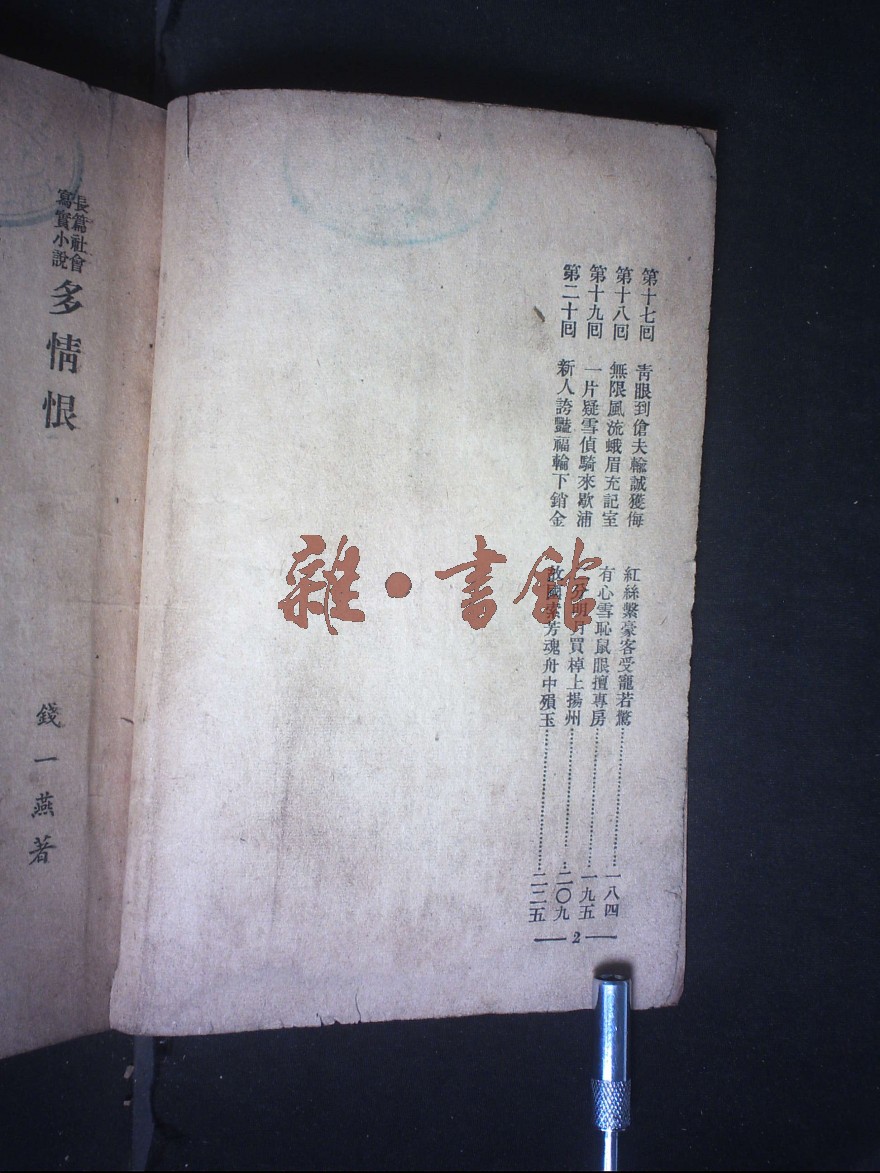 第十七回 靑眼到傖夫輸誠獲侮 紅絲繫豪客受寵若驚 一八四
第十八回 無限風流蛾眉充記室 有心雪恥鼠眼擅專房 一九五
第十九回 一片疑雪偵騎來歇浦 分明月買棹上揚州 二〇九
第二十回 新人誇豔福輪下銷金 故國索芳魂舟中殞玉 二二五
2
長篇社會
寫實小說
多情恨
錢一燕著
雜·書館